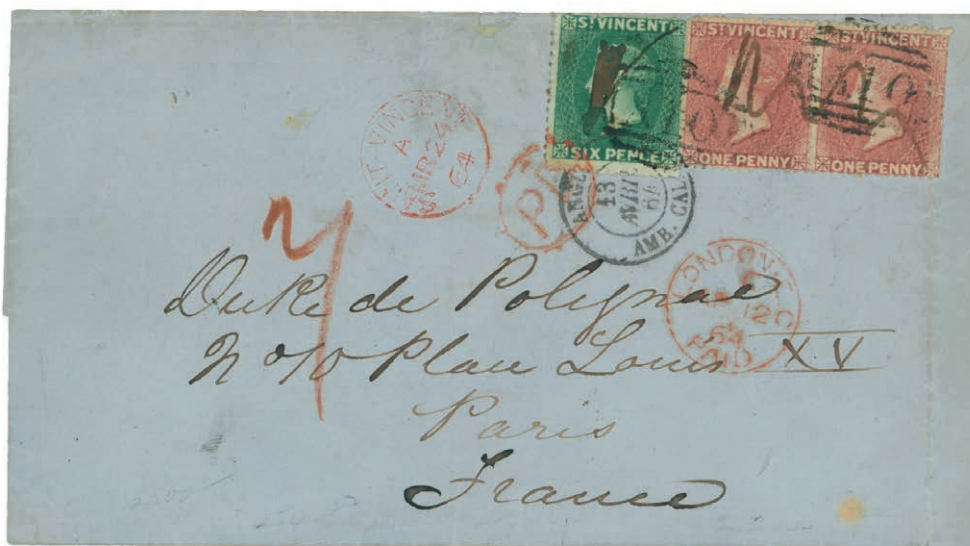 ST VINCENT
SIX PENCE
ST VINCENT
ONE PENNY
ST VINCENT
ONE PENNY
A10
SAINT VINCENT
A
MR 24
64
PD
ANGL.
13
AVRIL
64
AMB. CAL
LONDON
12
64
PAID
Duke de Polignac
No 10 Place Louis XV
Paris
France